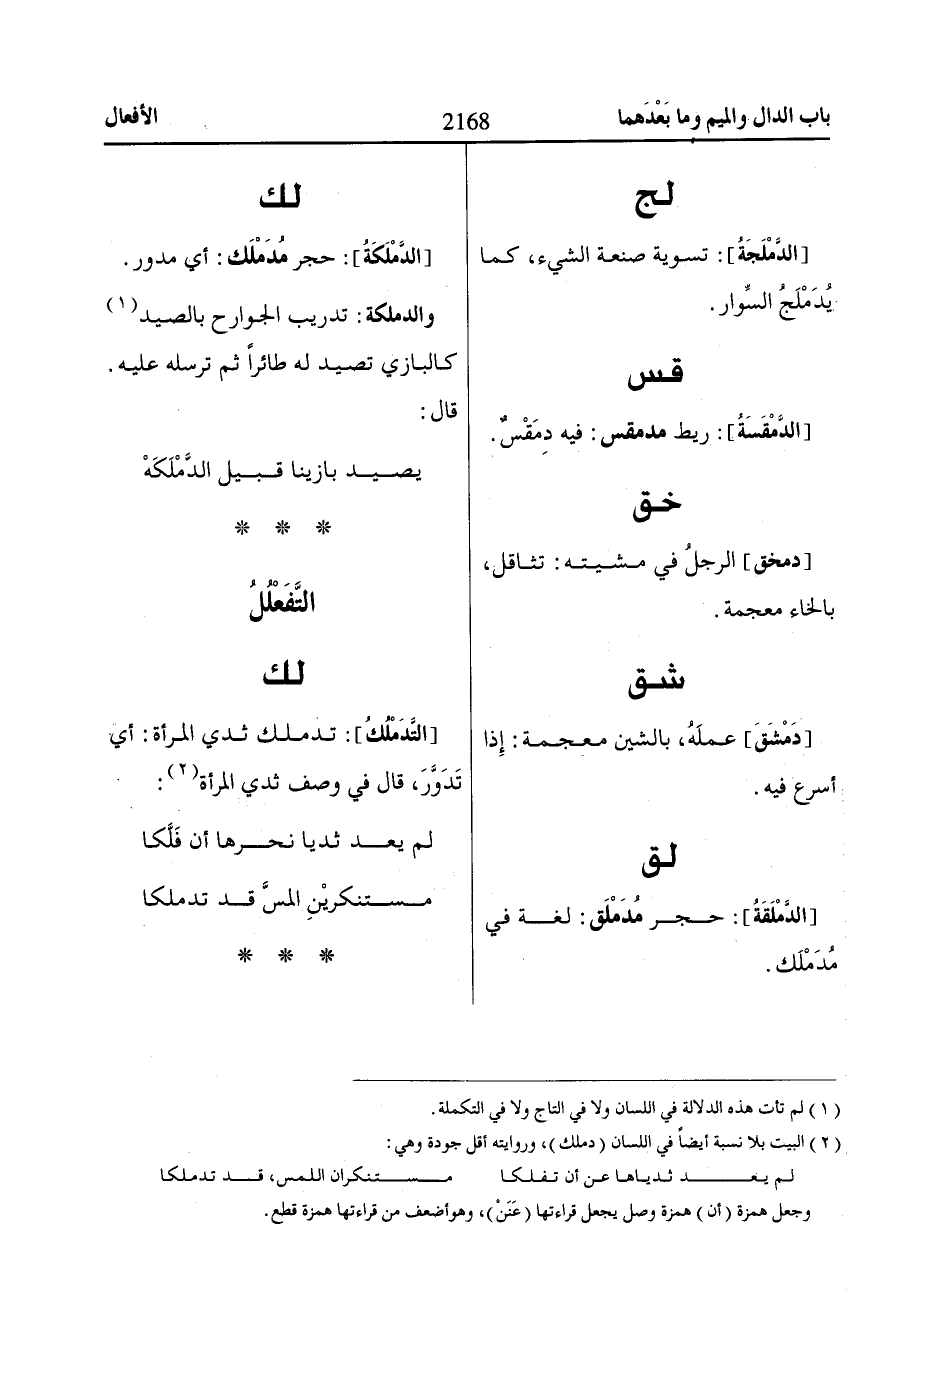 باب الدال والميم وما بَعْدَهما
2168
الأفعال
لج
[الدَّمْلَجَةُ]: تسوية صنعة الشيء، كما
يُدَمْلَجُ السِّوار.
قس
[الدَّمْقَسَةُ]: ريط مدمقس: فيه دِمَقْسٌ.
خق
[دمخق] الرجلُ في مشيته: تثاقل،
بالخاء معجمة.
شق
[دَمْشَقَ] عملَهُ، بالشين معجمة: إِذا
أسرع فيه.
لق
[الدَّمْلَقَةُ]: حجر مُدَمْلَق: لغة في
مُدَمْلَك.
لك
[الدَّمْلَكَةُ]: حجر مُدَمْلَك: أي مدور.
والدملكة: تدريب الجوارح بالصيد(١)
كالبازي تصيد له طائراً ثم ترسله عليه.
قال:
يصيد بازينا قبيل الدَّمْلَكَهْ
* * *
التَّفَعْلُلُ
لك
[التَّدَمْلُكُ]: تدملك ثدي المرأة: أي
تَدَوَّرَ، قال في وصف ثدي المرأة(٢):
لم يعد ثديا نحرها أن فَلَّكا
مستنكريْنِ المسَّ قد تدملكا
* * *
(١) لم تأت هذه الدلالة في اللسان ولا في التاج ولا في التكملة.
(٢) البيت بلا نسبة أيضاً في اللسان (دملك)، وروايته أقل جودة وهي:
لم يعد ثدياها عن أن تفلكا مستنكران اللمس، قد تدملكا
وجعل همزة (أن) همزة وصل يجعل قراءتها (عَنَنْ)، وهو أضعف من قراءتها همزة قطع.